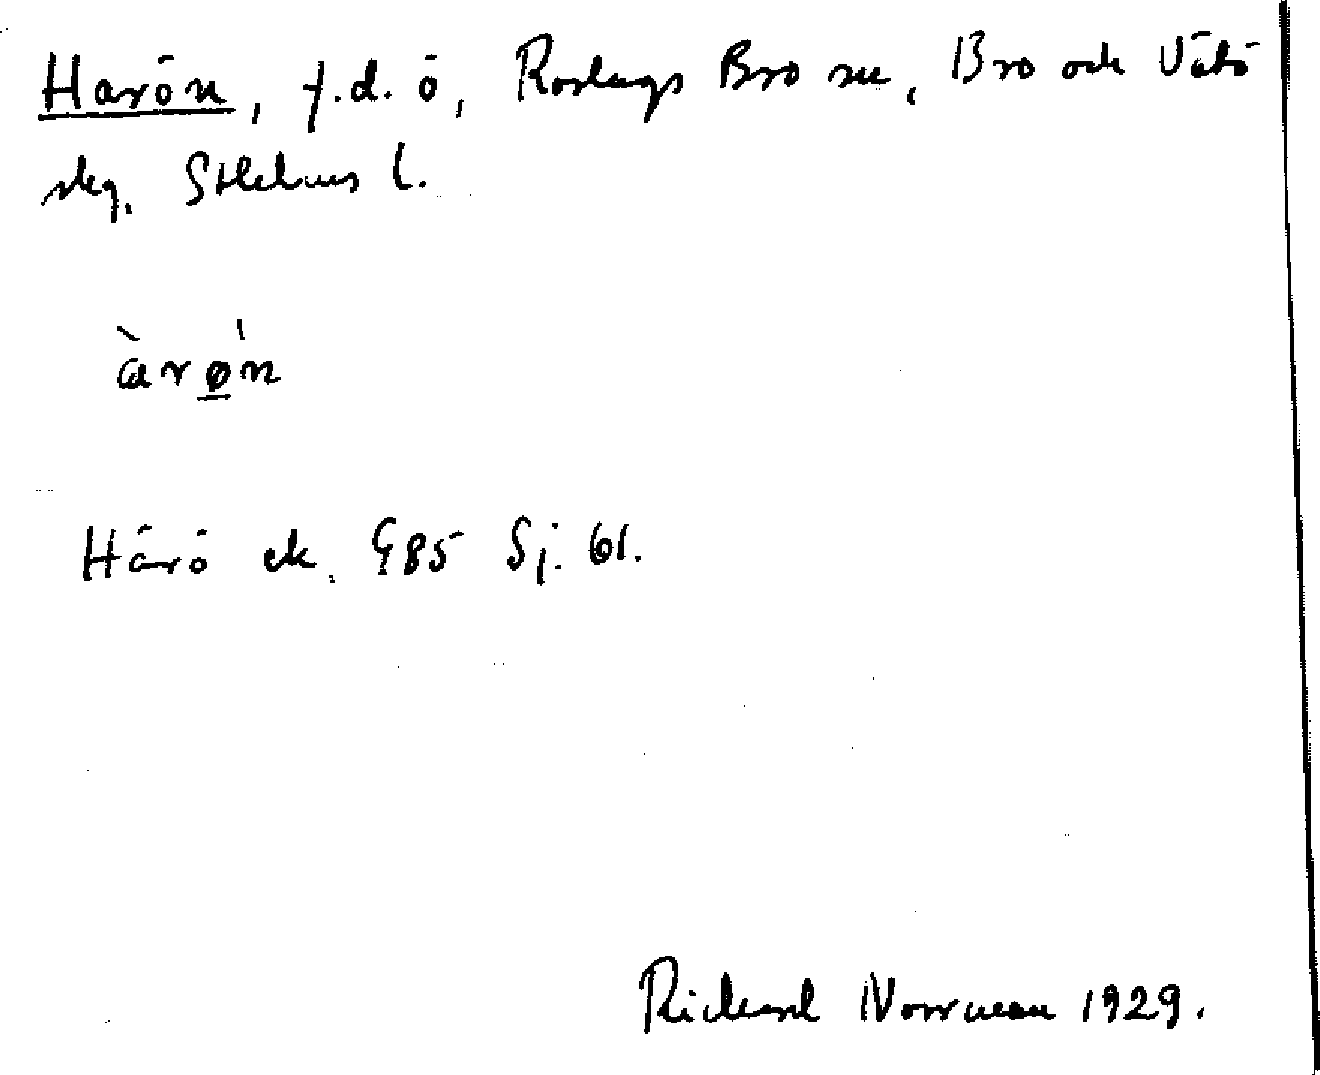 Harön, f.d. ö, Roslags Bro sn, Bro och Vätö
skg, Sthlms l.
àrø̲n
Harö ek. G85 Sj. 61.
Rickard Norrman 1929.